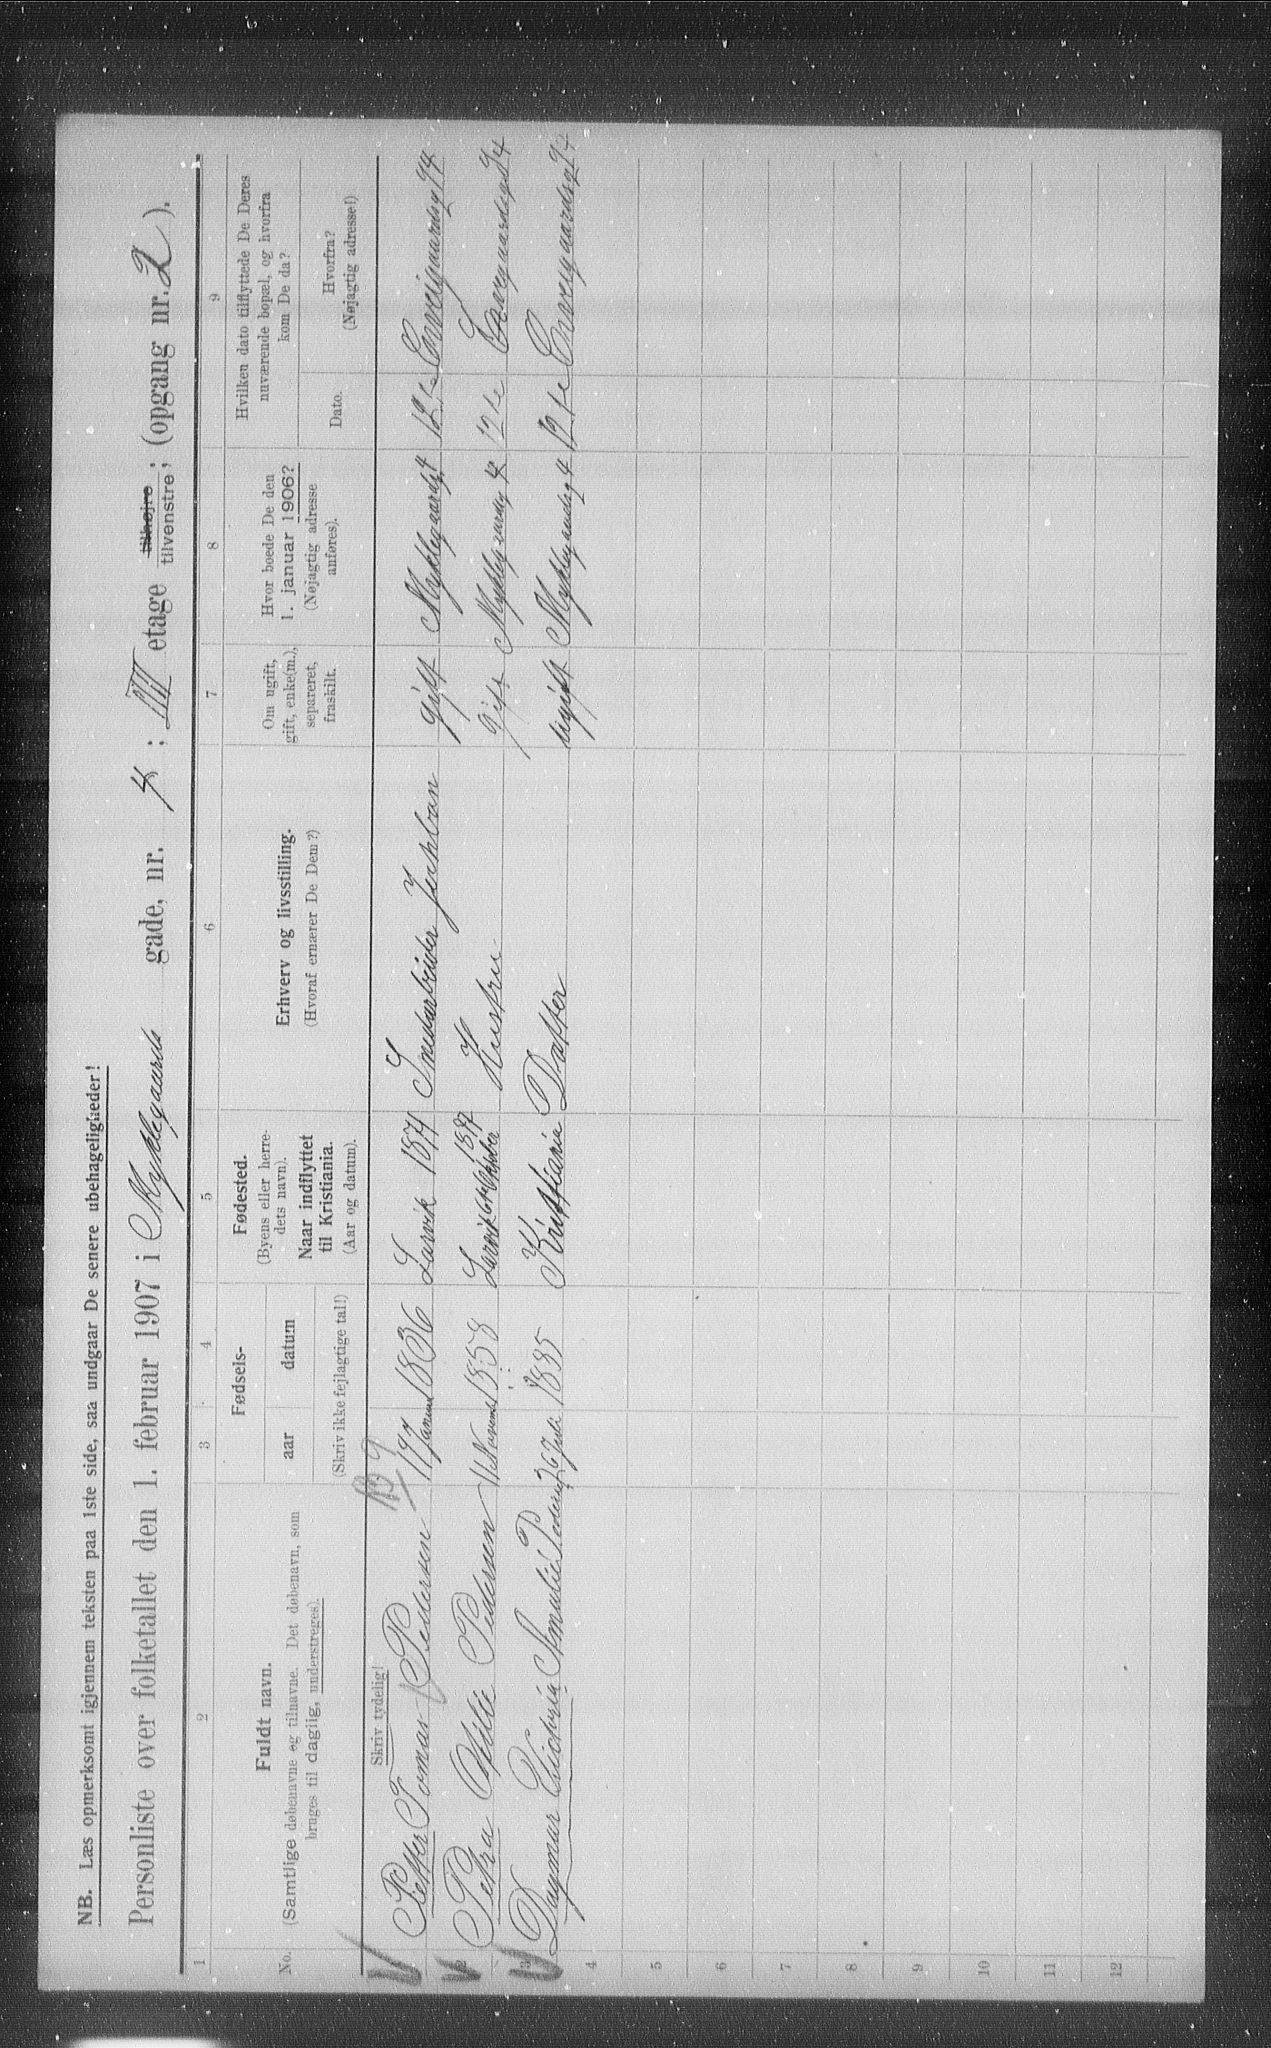 NB. Læs opmerksomt igjennem teksten paa 1ste side, saa undgaar De senere ubehageligheder!
Personliste over folketallet den 1. februar 1907 i Myklegaards gade, nr. 4; III etage tilhøjre tilvenstre; (opgang nr. 2).
1 2 3 4 5 6 7 8 9
No.
Fuldt navn.
(Samtlige døbenavne og tilnavne. Det døbenavn, som
bruges til daglig, understreges).
Fødsels-
aar datum
(Skriv ikke fejlagtige tal!)
Fødested.
(Byens eller herre-
dets navn).
Naar indflyttet
til Kristiania.
(Aar og datum).
Erhverv og livsstilling.
(Hvoraf ernærer De Dem?)
Om ugift,
gift, enke(m.),
separeret,
fraskilt.
Hvor boede De den
1. januar 1906?
(Nøjagtig adresse
anføres).
Hvilken dato tilflyttede De Deres
nuværende bopæl, og hvorfra
kom De da?
Dato.
Hvorfra?
(Nøjagtig adresse!)
Skriv tydelig!
Petter Tomas Pedersen Januar 1836 Larvik 1874 gift Myklegaardsg 4
2 Petra Pedersen 1858 Larvik Hustru gift Myklegaardsg 4
3 Dagmar Amalie Pedersen 26 Juli 1885 Kristiania Datter ugift Myklegaardsg 4
4
5
6
7
8
9
10
11
12